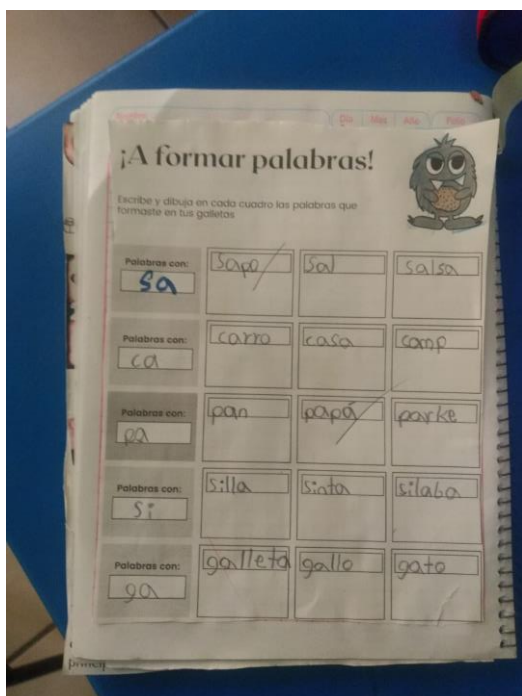 Nombre
Día Mes Año Folio
¡A formar palabras!
Escribe y dibuja en cada cuadro las palabras que
formaste en tus galletas
Palabras con:
sa
Sapo
Sal
salsa
Palabras con:
ca
carro
casa
camp
Palabras con:
pa
pan
papá
parke
Palabras con:
si
silla
sinta
silaba
Palabras con:
ga
galleta
gallo
gato